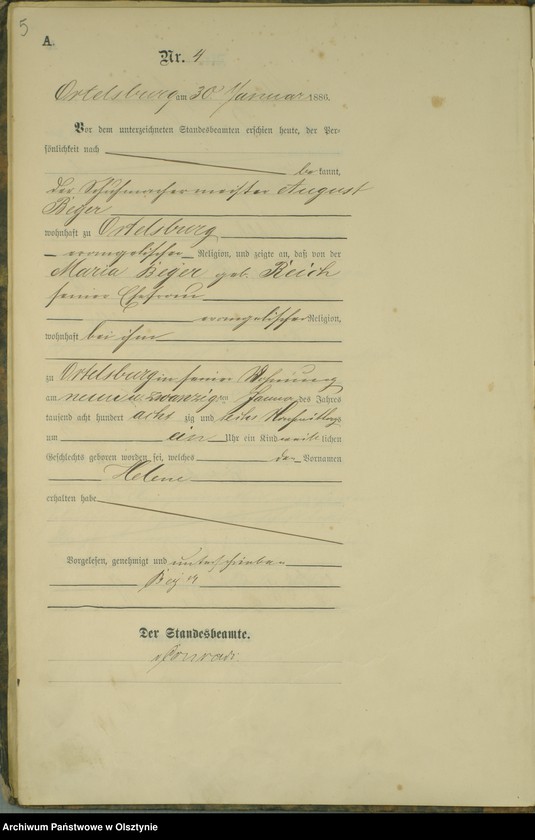 5
A.
Nr. 4
Ortelsburg am 30 Januar 1886.
Vor dem unterzeichneten Standesbeamten erschien heute, der Per-
sönlichkeit nach
be kannt,
der Schuhmachermeister August
Beyer
wohnhaft zu Ortelsburg
evangelischer Religion, und zeigte an, daß von der
Maria Beyer geb. Reich
seiner Ehefrau
evangelischer Religion,
wohnhaft bei ihm
zu Ortelsburg in seiner Wohnung
am neun u. zwanzigten Januar des Jahres
tausend acht hundert acht zig und sechs Nachmittags
um ein Uhr ein Kind weiblichen
Geschlechts geboren worden sei, welches den Vornamen
Helene
erhalten habe
Vorgelesen, genehmigt und unterschrieben
Beyer
Der Standesbeamte.
Conrad
Archiwum Państwowe w Olsztynie